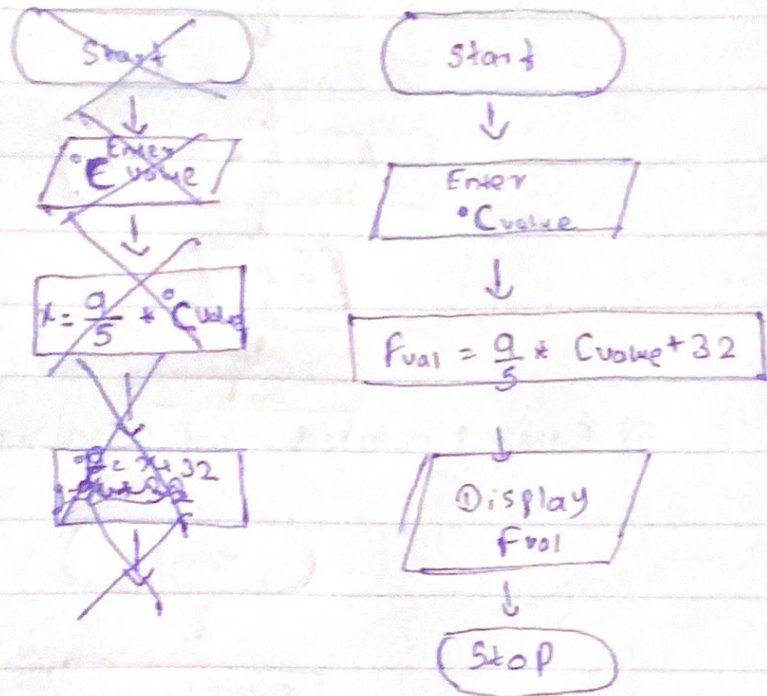 Start
Enter
°C value
x = 9/5 * °C value
= x + 32
Start
Enter
°C value
Fval = 9/5 * Cvalue + 32
Display
Fval
Stop